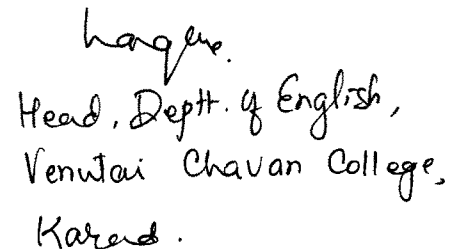 Head, Deptt. of English,
Venutai Chavan College,
Karad.